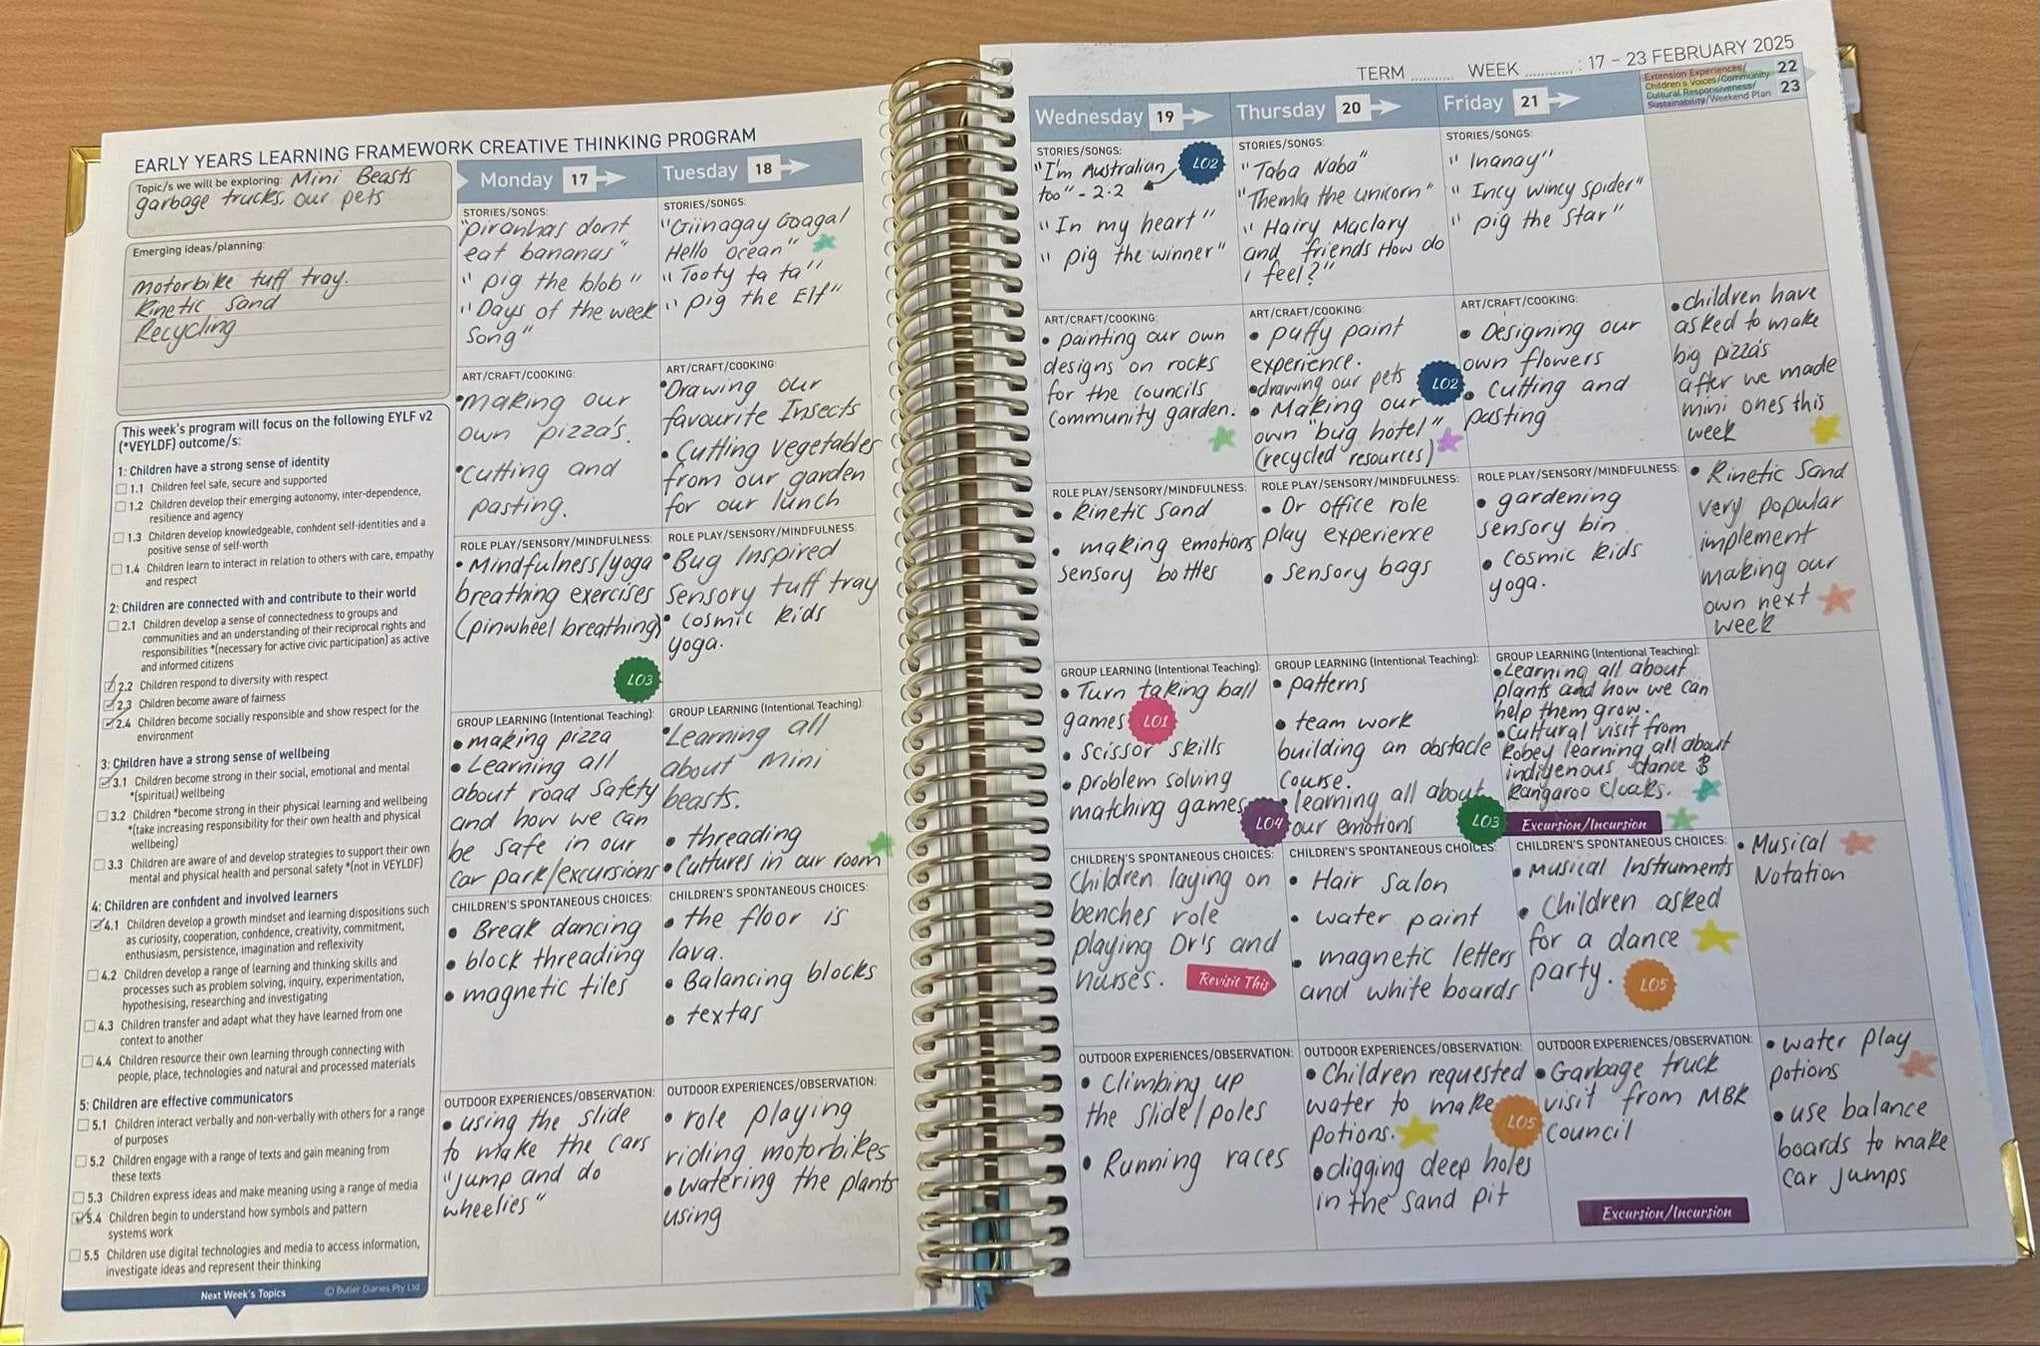 EARLY YEARS LEARNING FRAMEWORK CREATIVE THINKING PROGRAM
Topic/s we will be exploring: Mini Beasts
garbage trucks, our pets
Emerging ideas/planning:
Motorbike tuff tray.
Kinetic sand
Recycling
This week's program will focus on the following EYLF v2
(*VEYLDF) outcome/s:
1: Children have a strong sense of identity
1.1 Children feel safe, secure and supported
1.2 Children develop their emerging autonomy, inter-dependence,
resilience and agency
1.3 Children develop knowledgeable, confident self-identities and a
positive sense of self-worth
1.4 Children learn to interact in relation to others with care, empathy
and respect
2: Children are connected with and contribute to their world
2.1 Children develop a sense of connectedness to groups and
communities and an understanding of their reciprocal rights and
responsibilities *(necessary for active civic participation) as active
and informed citizens
2.2 Children respond to diversity with respect
2.3 Children become aware of fairness
2.4 Children become socially responsible and show respect for the
environment
3: Children have a strong sense of wellbeing
3.1 Children become strong in their social, emotional and mental
*(spiritual) wellbeing
3.2 Children *become strong in their physical learning and wellbeing
*(take increasing responsibility for their own health and physical
wellbeing)
3.3 Children are aware of and develop strategies to support their own
mental and physical health and personal safety *(not in VEYLDF)
4: Children are confident and involved learners
4.1 Children develop a growth mindset and learning dispositions such
as curiosity, cooperation, confidence, creativity, commitment,
enthusiasm, persistence, imagination and reflexivity
4.2 Children develop a range of learning and thinking skills and
processes such as problem solving, inquiry, experimentation,
hypothesising, researching and investigating
4.3 Children transfer and adapt what they have learned from one
context to another
4.4 Children resource their own learning through connecting with
people, place, technologies and natural and processed materials
5: Children are effective communicators
5.1 Children interact verbally and non-verbally with others for a range
of purposes
5.2 Children engage with a range of texts and gain meaning from
these texts
5.3 Children express ideas and make meaning using a range of media
5.4 Children begin to understand how symbols and pattern
systems work
5.5 Children use digital technologies and media to access information,
investigate ideas and represent their thinking
Next Week's Topics
© Butler Diaries Pty Ltd
Monday 17
STORIES/SONGS:
"piranhas dont
eat bananas"
"pig the blob"
"Days of the week
Song"
ART/CRAFT/COOKING:
• Making our
own pizza's.
• Cutting and
pasting.
ROLE PLAY/SENSORY/MINDFULNESS:
• Mindfulness/yoga
breathing exercises
(pinwheel breathing)
LO3
GROUP LEARNING (Intentional Teaching):
• making pizza
• Learning all
about road safety
and how we can
be safe in our
car park/excursions
CHILDREN'S SPONTANEOUS CHOICES:
• Break dancing
• block threading
• magnetic tiles
OUTDOOR EXPERIENCES/OBSERVATION:
• using the slide
to make the cars
"jump and do
wheelies"
Tuesday 18
STORIES/SONGS:
"Giinagay Gaagal
Hello ocean"
"Tooty ta ta"
"pig the Elf"
ART/CRAFT/COOKING
• Drawing our
favourite Insects
• Cutting vegetables
from our garden
for our lunch
ROLE PLAY/SENSORY/MINDFULNESS
• Bug Inspired
Sensory tuff tray
• Cosmic kids
yoga.
GROUP LEARNING (Intentional Teaching):
• Learning all
about Mini
beasts.
• threading
• Cultures in our room
CHILDREN'S SPONTANEOUS CHOICES:
• the floor is
lava.
• Balancing blocks
• textas
OUTDOOR EXPERIENCES/OBSERVATION:
• role playing
riding motorbikes
• watering the plants
using
TERM ........... WEEK ............ : 17 – 23 FEBRUARY 2025
Wednesday 19
STORIES/SONGS:
"I'm Australian
too" - 2.2
LO2
"In my heart"
"pig the winner"
ART/CRAFT/COOKING:
• painting our own
designs on rocks
for the councils
Community garden.
ROLE PLAY/SENSORY/MINDFULNESS:
• kinetic sand
• making emotions
sensory bottles
GROUP LEARNING (Intentional Teaching):
• Turn taking ball
games
LO1
• scissor skills
• problem solving
matching games
LO4
CHILDREN'S SPONTANEOUS CHOICES:
Children laying on
benches role
playing Dr's and
nurses.
Revisit This
OUTDOOR EXPERIENCES/OBSERVATION:
• Climbing up
the slide/poles
• Running races
Thursday 20
STORIES/SONGS:
"Taba Naba"
"Themla the unicorn"
"Hairy Maclary
and friends How do
I feel?"
ART/CRAFT/COOKING
• puffy paint
experience.
• drawing our pets
LO2
• Making our
own "bug hotel"
(recycled resources)
ROLE PLAY/SENSORY/MINDFULNESS:
• Dr office role
play experience
• sensory bags
GROUP LEARNING (Intentional Teaching):
• patterns
• team work
building an obstacle
course.
• learning all about
our emotions
LO3
CHILDREN'S SPONTANEOUS CHOICES:
• Hair Salon
• water paint
• magnetic letters
and white boards
OUTDOOR EXPERIENCES/OBSERVATION:
• Children requested
water to make
potions.
LO5
• digging deep holes
in the sand pit
Friday 21
STORIES/SONGS:
"Inanay"
"Incy wincy spider"
"pig the star"
ART/CRAFT/COOKING:
• Designing our
own flowers
• Cutting and
pasting
ROLE PLAY/SENSORY/MINDFULNESS:
• gardening
sensory bin
• Cosmic kids
yoga.
GROUP LEARNING (Intentional Teaching):
• Learning all about
plants and how we can
help them grow.
• Cultural visit from
Kobey learning all about
indigenous dance &
kangaroo cloaks.
Excursion/Incursion
CHILDREN'S SPONTANEOUS CHOICES:
• Musical Instruments
• Children asked
for a dance
party.
LO5
OUTDOOR EXPERIENCES/OBSERVATION:
• Garbage truck
visit from MBK
Council
Excursion/Incursion
Extension Experiences/
Children's Voices/Community
Cultural Responsiveness/
Sustainability/Weekend Plan
22
23
• Children have
asked to make
big pizza's
after we made
mini ones this
week
• Kinetic Sand
very popular
implement
making our
own next
week
• Musical
Notation
• water play
potions
• use balance
boards to make
car jumps